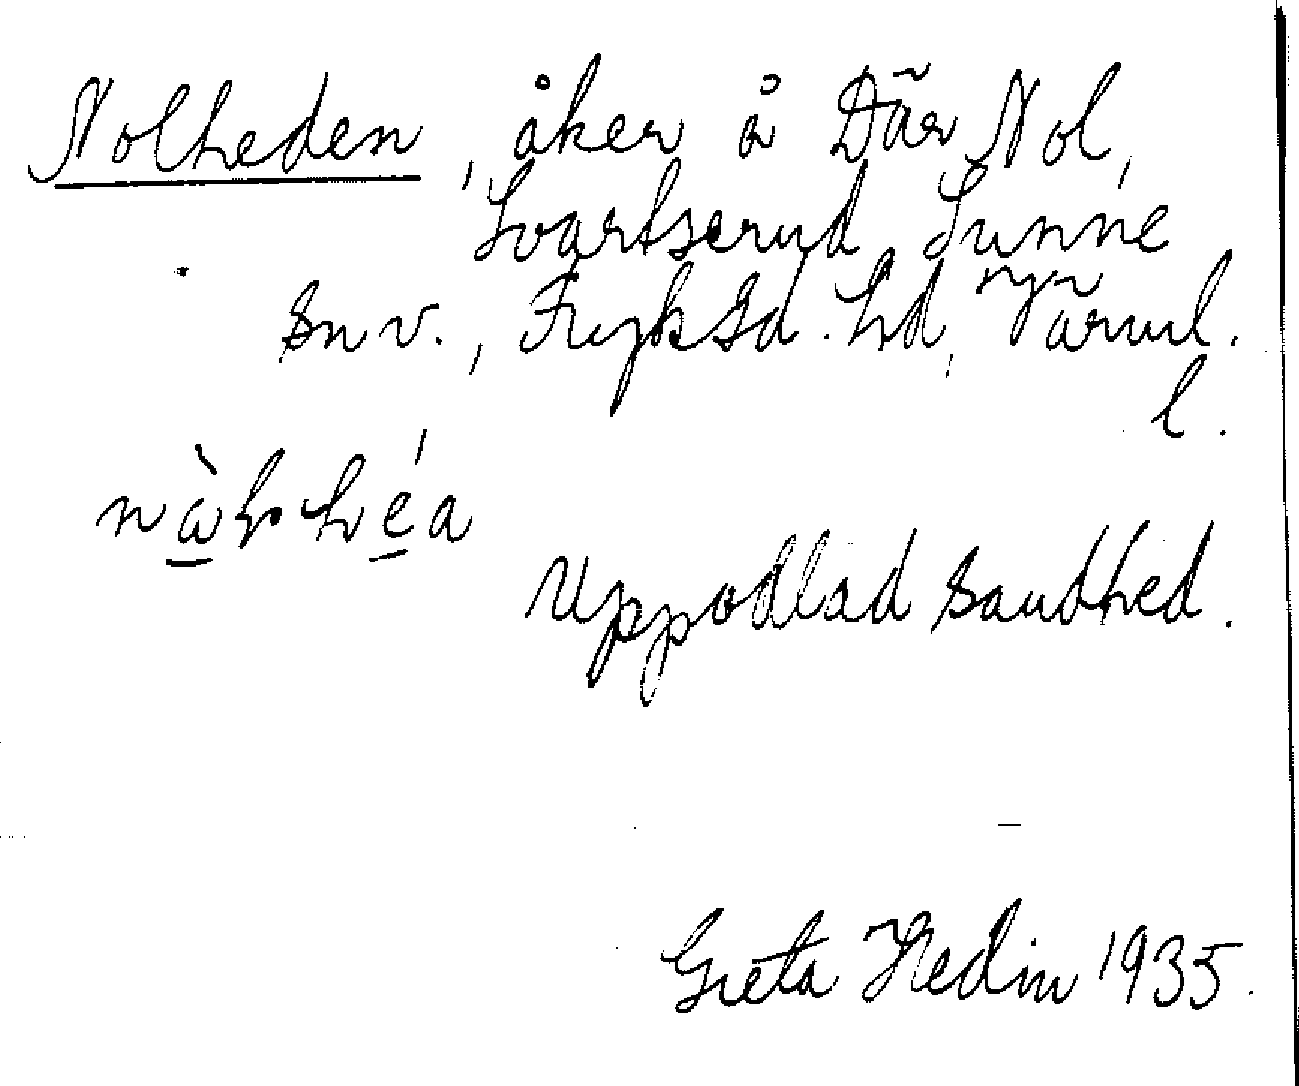 Nolheden, åker å Där Nol,
Svartserud, Sunne
sn v., Fryksd. hd, Värml.
l.
Uppodlad sandhed.
Greta Hedin 1935.